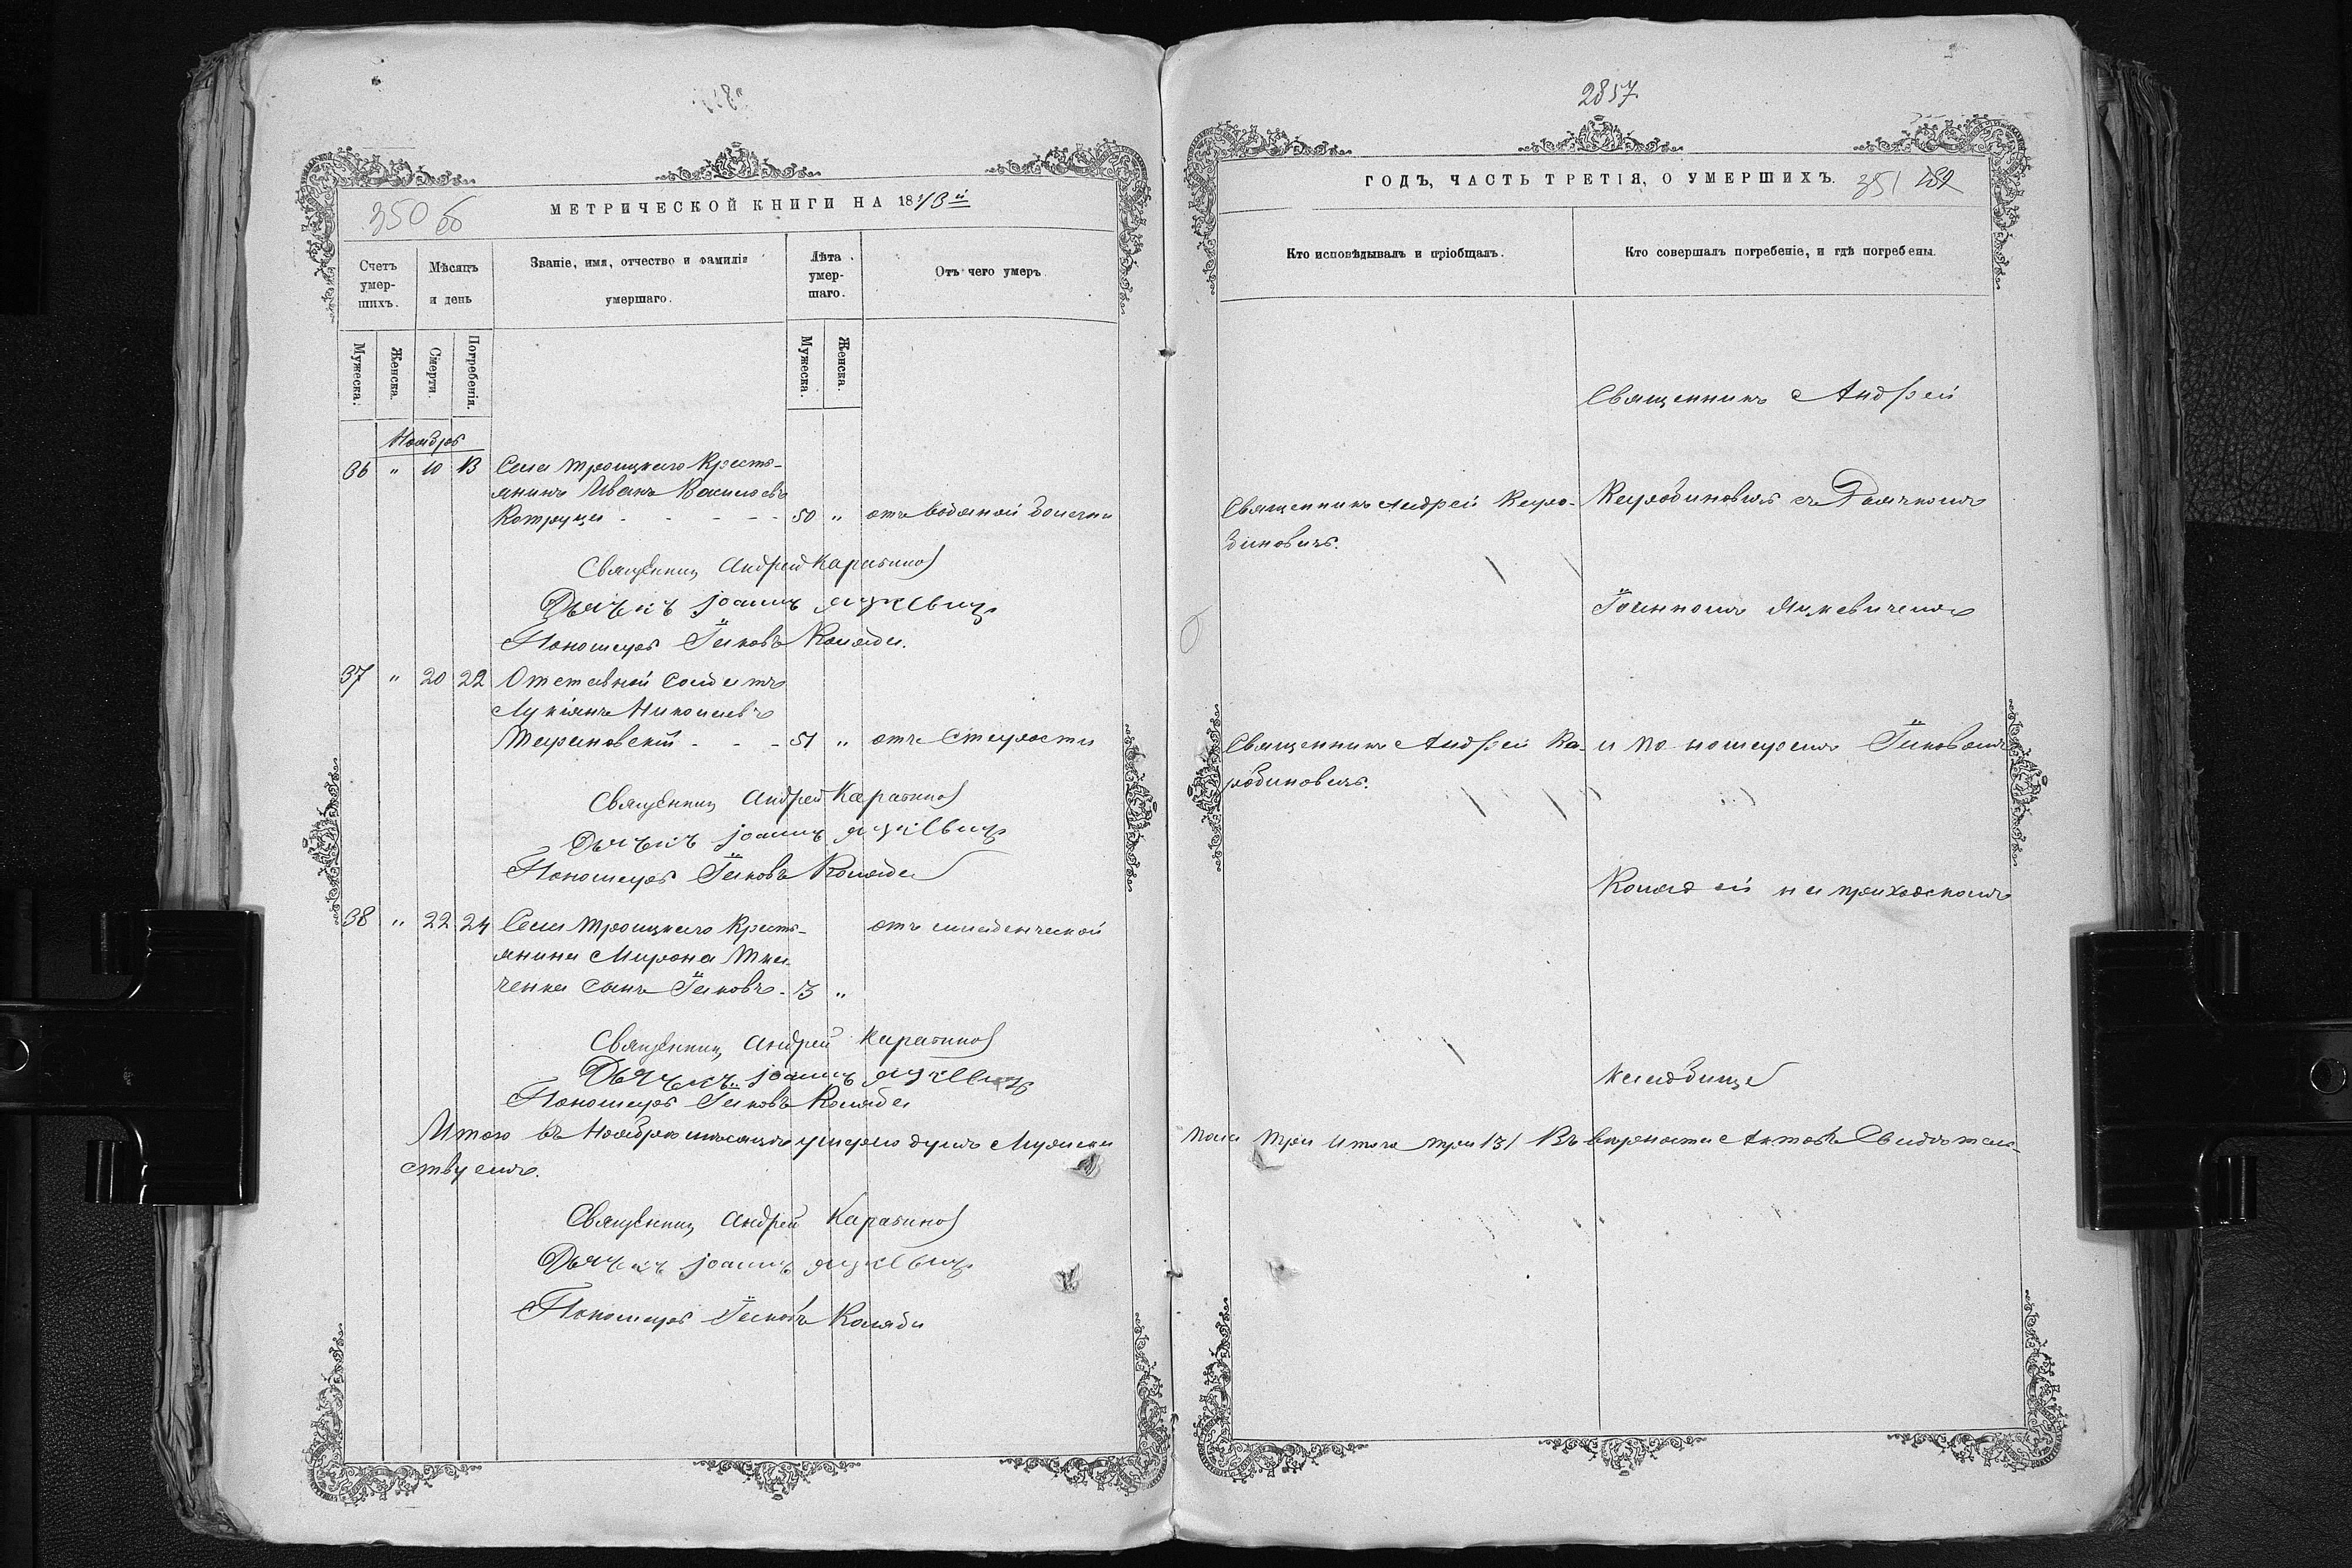 2857
350 об
МЕТРИЧЕСКОЙ КНИГИ НА 1873 й
Счетъ умер-шихъ.
Мѣсяцъ и день
Званіе, имя, отчество и фамилія умершаго.
Лѣта умер-шаго.
Отъ чего умеръ
Мужеска.
Женска.
Смерти.
Погребенія.
Мужеска.
Женска.
Ноябрь
36 " 10 13 Села Троицкаго Кресть-
янинъ Иванъ Василіевъ
Котруца - - - - - 50 " отъ водяной болезни
Священникъ Андрей Карабинов
Дьячекъ Іоаннъ Яцкевичъ
Пономарь Іаковъ Коляда.
37 " 20 22 Отставной Солдатъ
Лукіянъ Николаевъ
Тарановскій - - - 51 " отъ Старости
Священникъ Андрей Карабинов
Дьячекъ Іоаннъ Яцкевичъ
Пономарь Іаковъ Коляда
38 " 22 24 Села Троицкаго Кресть- отъ младенческой
янина Мирона Тка-
ченка сынъ Іаковъ - 3 "
Священникъ Андрей Карабинов
Дьячекъ Іоаннъ Яцкевичъ
Пономарь Іаковъ Коляда
Итого въ Ноябрѣ мѣсяцѣ умерло душъ Мужска
ствуемъ.
Священникъ Андрей Карабинов
Дьячекъ Іоаннъ Яцкевичъ
Пономарь Іаковъ Коляда
ГОДЪ, ЧАСТЬ ТРЕТІЯ, О УМЕРШИХЪ.
351
Кто исповѣдывалъ и пріобщалъ.
Кто совершалъ погребеніе, и гдѣ погребены.
Священникъ Андрей
Священникъ Андрей Кара-
биновичъ.
Карабиновичъ съ Дьячкомъ
Іоанномъ Яцкевичемъ
Священникъ Андрей Ка-
рабиновичъ.
и Пономаремъ Іаковомъ
Колядой на приходскомъ
кладбище
пола три Итого три /3/ Въ верности Актовъ Свидѣтель-